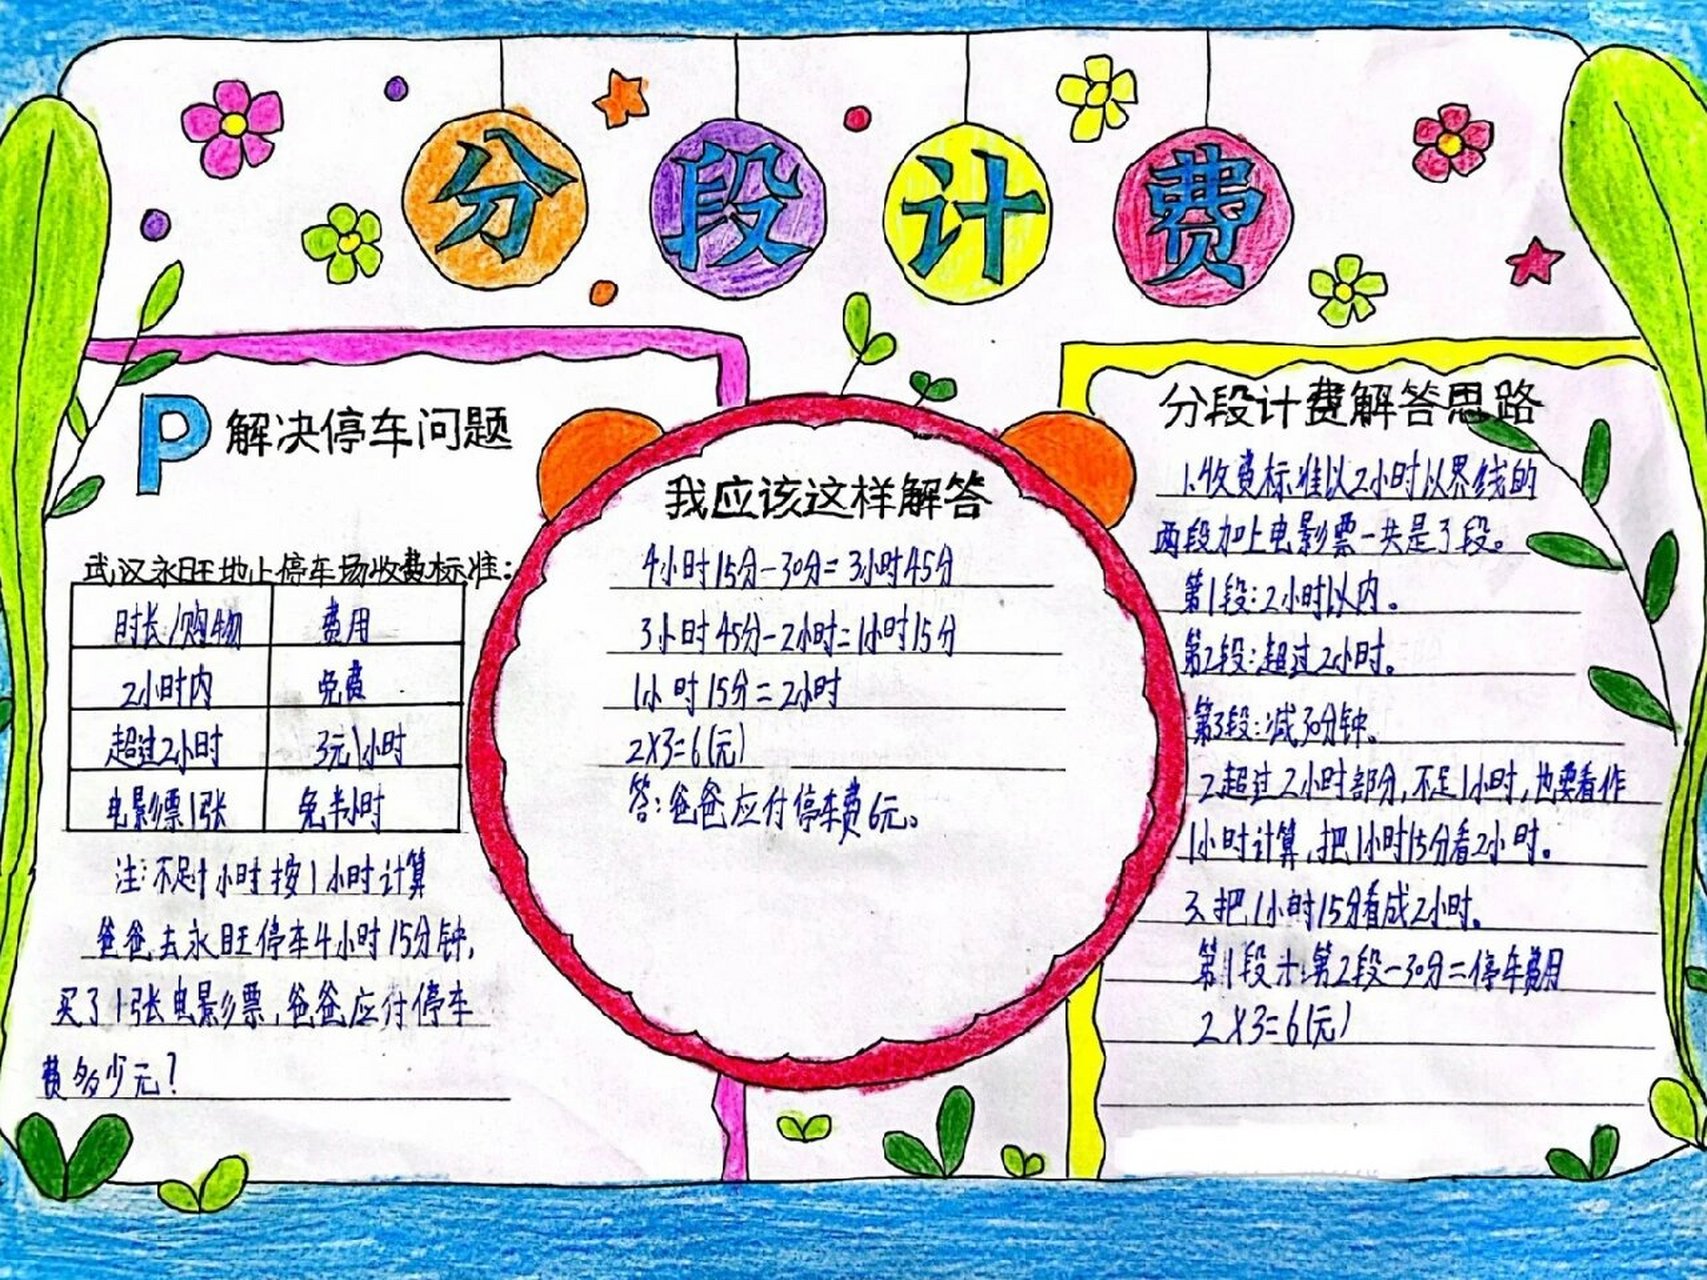 分段计费
P 解决停车问题
武汉永旺地上停车场收费标准：
时长/购物 费用
2小时内 免费
超过2小时 3元/小时
电影票1张 免半小时
注：不足1小时按1小时计算
爸爸去永旺停车4小时15分钟，
买了1张电影票，爸爸应付停车
费多少元？
我应该这样解答
4小时15分-30分=3小时45分
3小时45分-2小时=1小时15分
1小时15分=2小时
2×3=6(元)
答：爸爸应付停车费6元。
分段计费解答思路
1.收费标准以2小时以界线的
两段加上电影票一共是3段。
第1段：2小时以内。
第2段：超过2小时。
第3段：减30分钟。
2.超过2小时部分，不足1小时，也要看作
1小时计算，把1小时15分看2小时。
3、把1小时15分看成2小时。
第1段计：第2段-30分=停车费用
2×3=6(元)